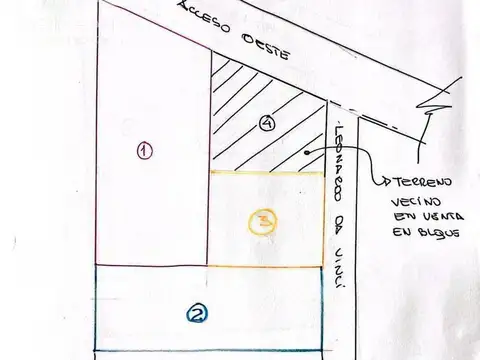 ACCESO OESTE
1
4
LEONARDO DA VINCI
TERRENO
VECINO
EN VENTA
EN BLOQUE
3
2